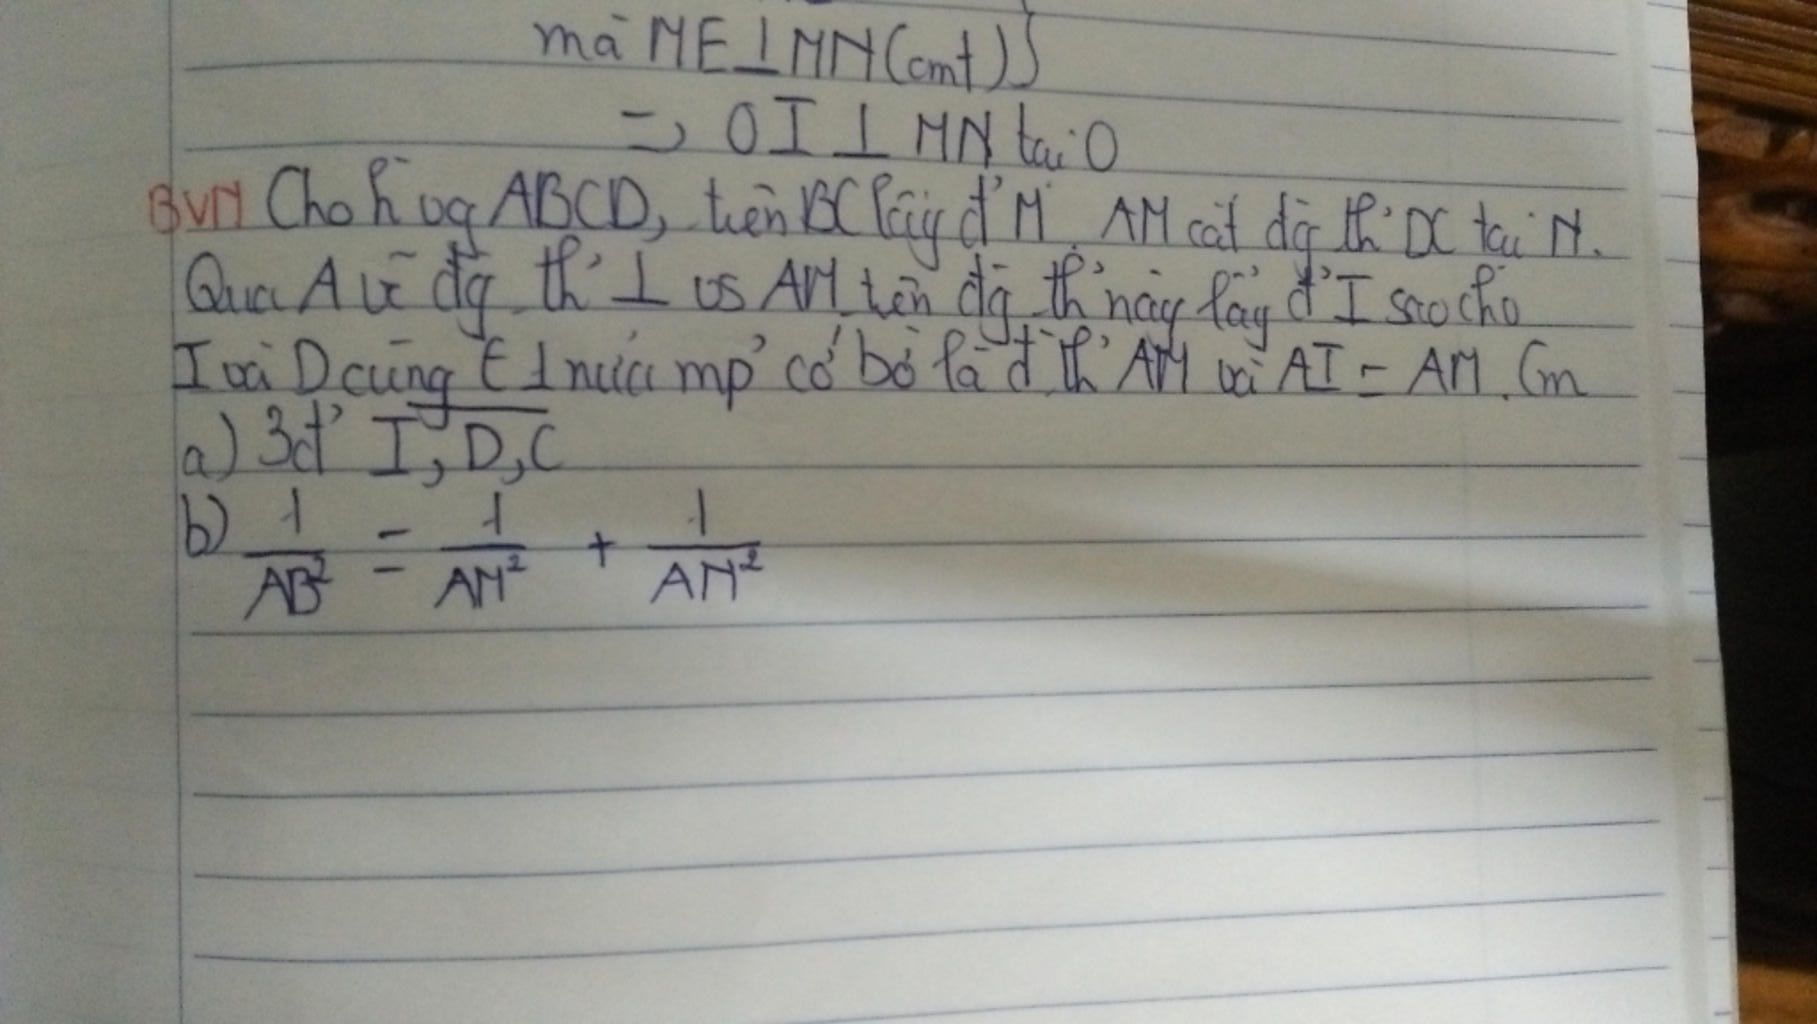 mà ME⊥MN(cmt)}
=> OI⊥MN tại O
BVN Cho h vg ABCD, trên BC lấy đ' M. AM cắt đg th' DC tại N.
Qua A vẽ đg th' ⊥ vs AM trên đg th' này lấy đ' I sao cho
I và D cùng ∈ 1 nửa mp' có bờ là đ th' AM và AI = AM. Cm
a) 3đ' I, D, C
b) 1/AB² = 1/AM² + 1/AN²